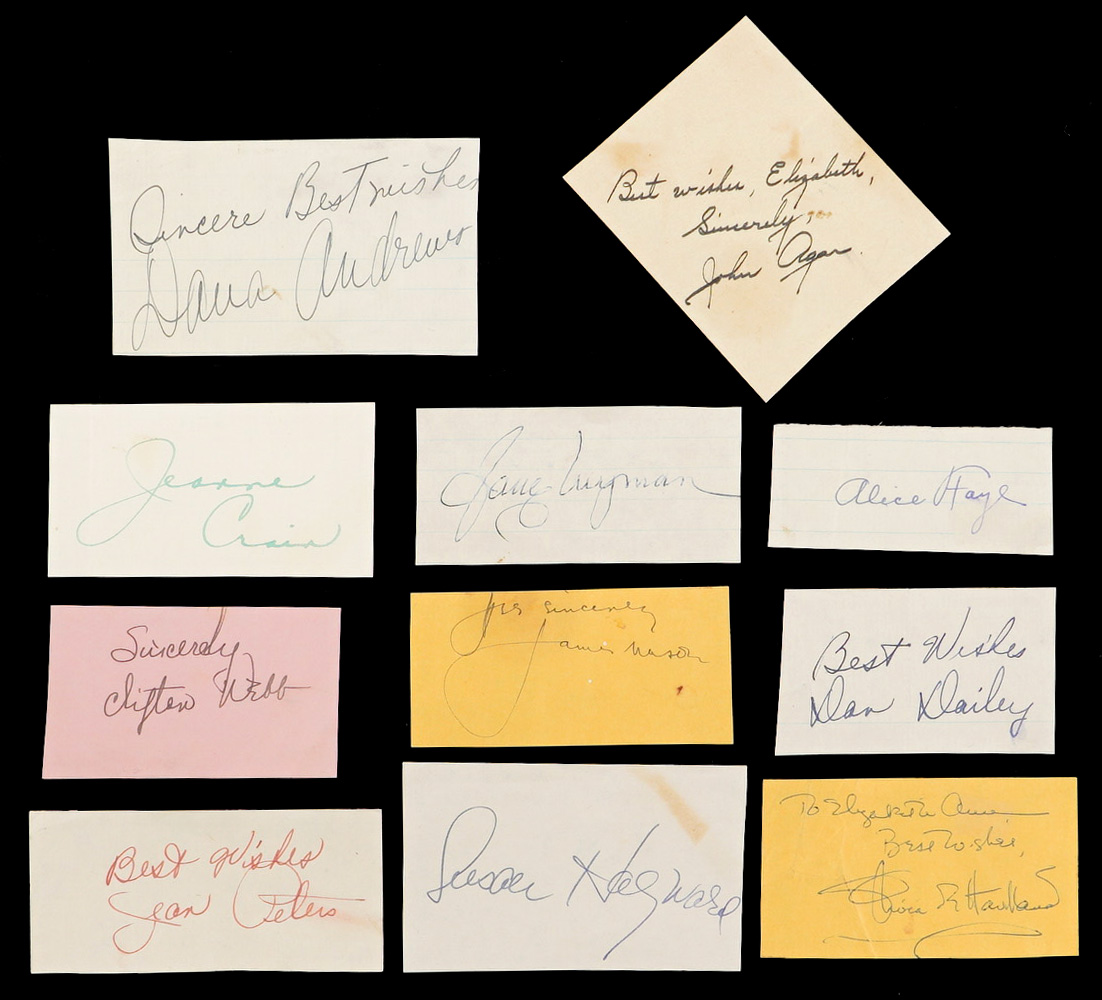 Sincere Best Wishes
Dana Andrews
Best wishes, Elizabeth,
Sincerely,
John Agar
Jeanne
Crain
Jane Wyman
Alice Faye
Sincerely
Clifton Webb
sincerely
James Mason
Best Wishes
Dan Dailey
Best Wishes
Jean Peters
Susan Hayward
To Elizabeth Ann
Best Wishes,
Olivia de Havilland